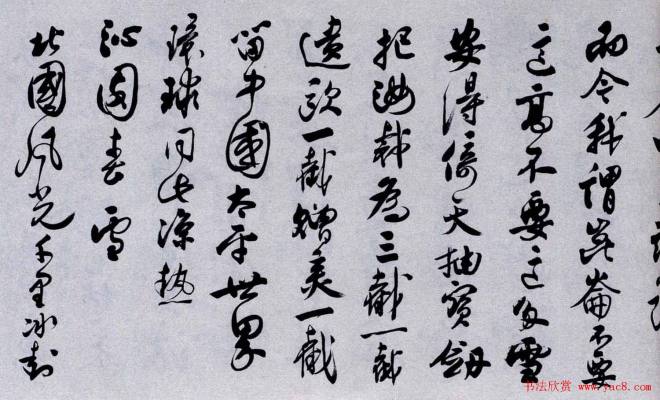 而今我謂崑崙不要
这高不要这多雪
安得倚天抽寶劍
把汝裁為三截一截
遺歐一截贈美一截
留中國太平世界
環球同此凉熱
沁園春雪
北國风光千里冰封
书法欣赏 www.yac8.com